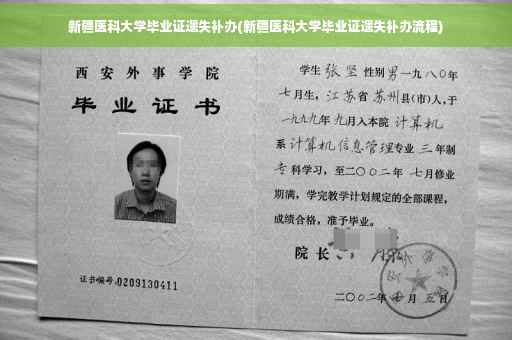 新疆医科大学毕业证遗失补办(新疆医科大学毕业证遗失补办流程)
西安外事学院
毕业证书
证书编号:0209130411
学生 张坚 性别 男 一九八〇年
七月生，江苏省 苏州县(市)人，于
一九九九年 九月入本院 计算机
系 计算机信息管理专业 三 年制
专 科学习，至二〇〇二年 七月修业
期满，学完教学计划规定的全部课程，
成绩合格，准予毕业。
院长
二〇〇二年 月 五日